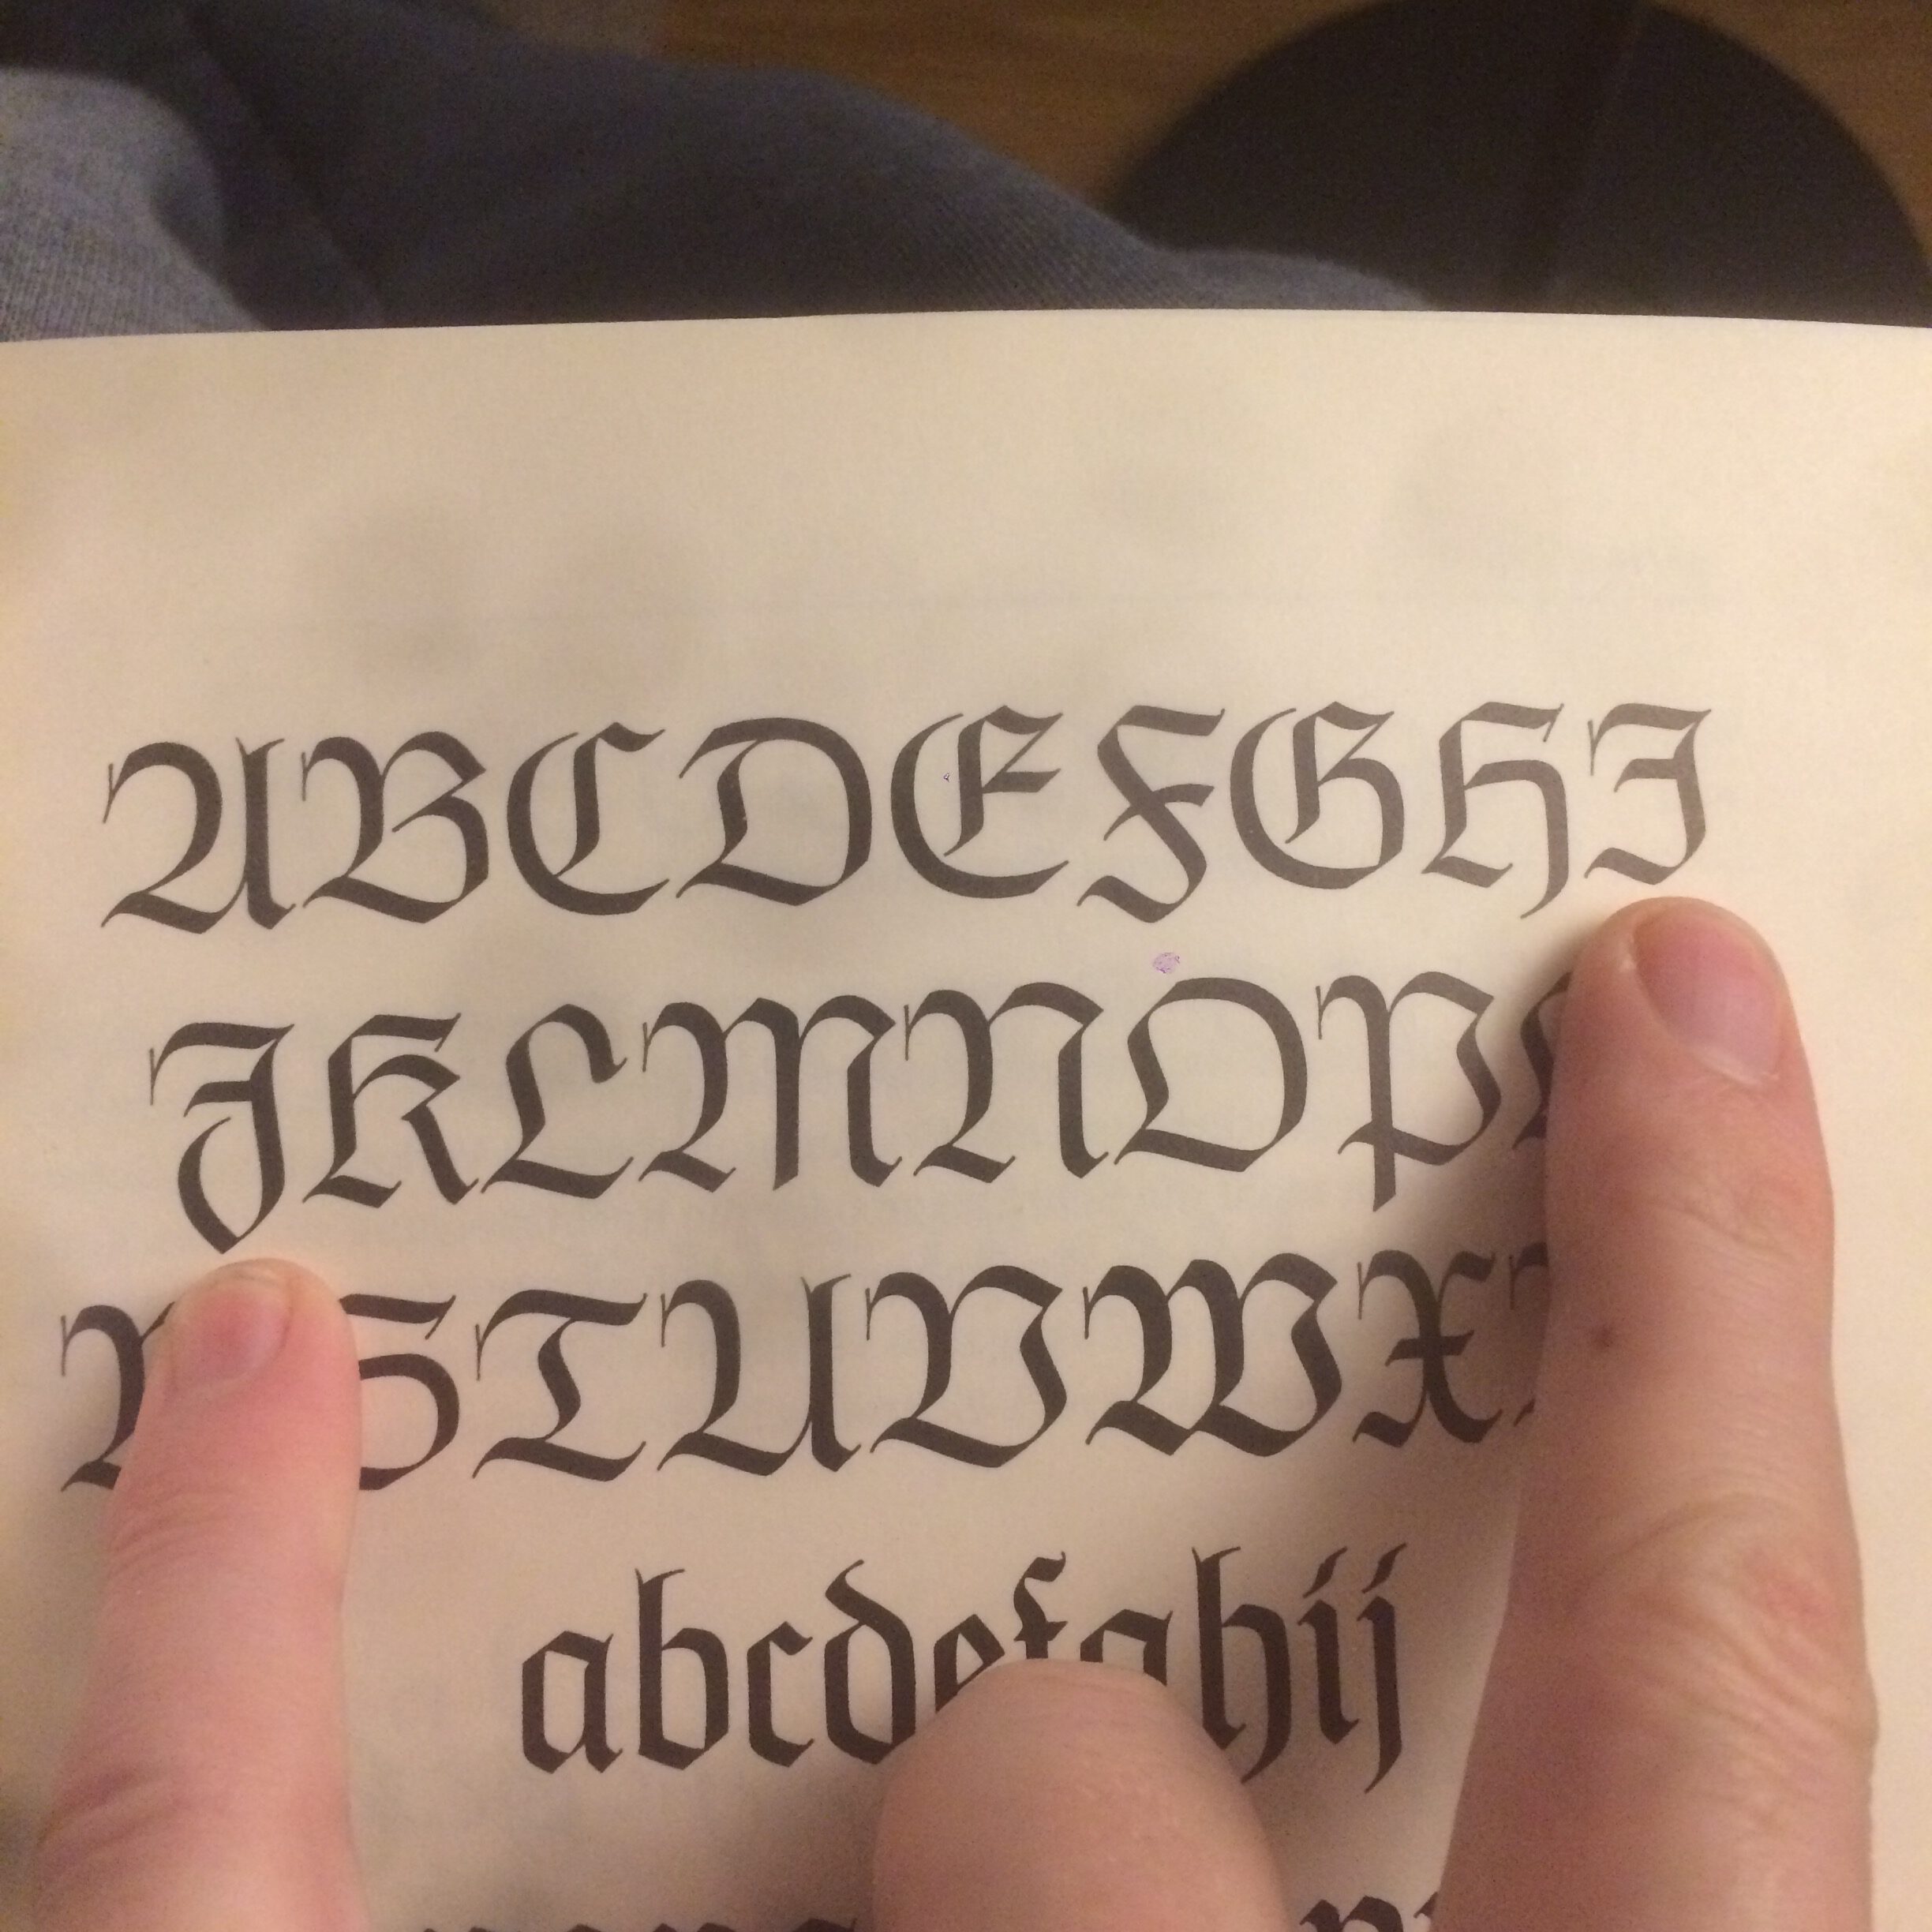 ABCDEFGHI
JKLMNOP
STUVWX
abcdefghij